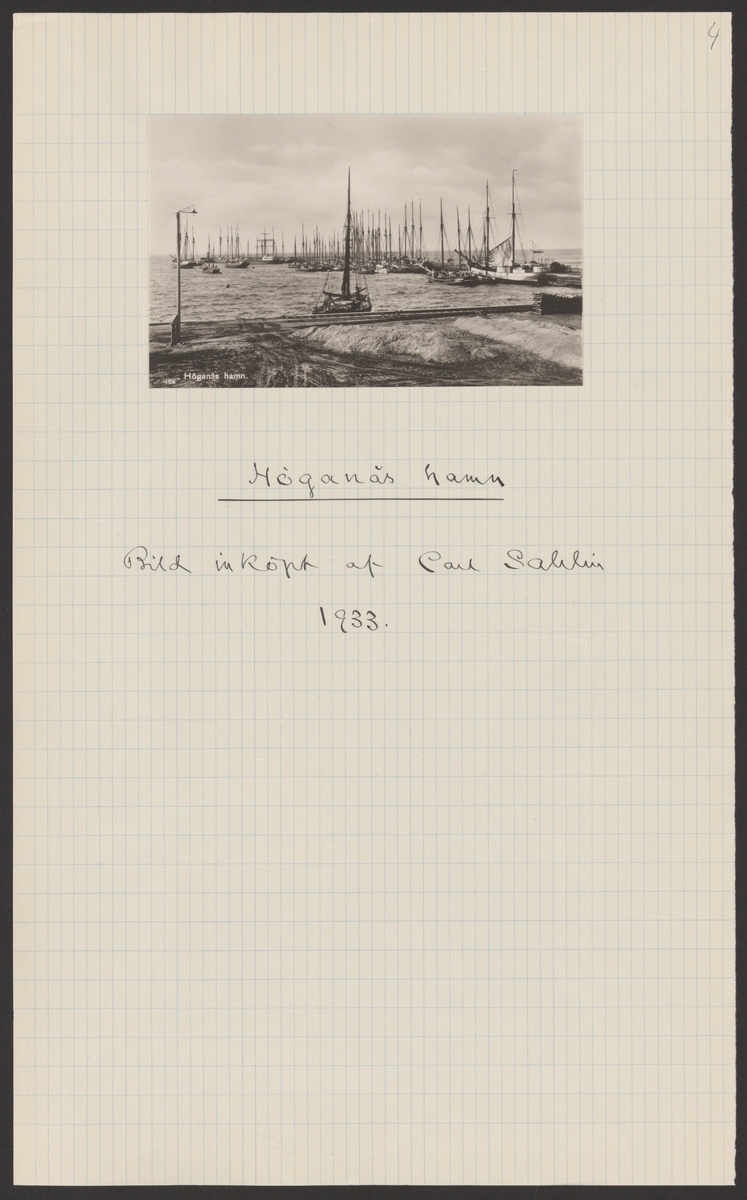 4
154 Höganäs hamn.
Höganäs hamn
Bild inköpt af Carl Sahlin
1933.